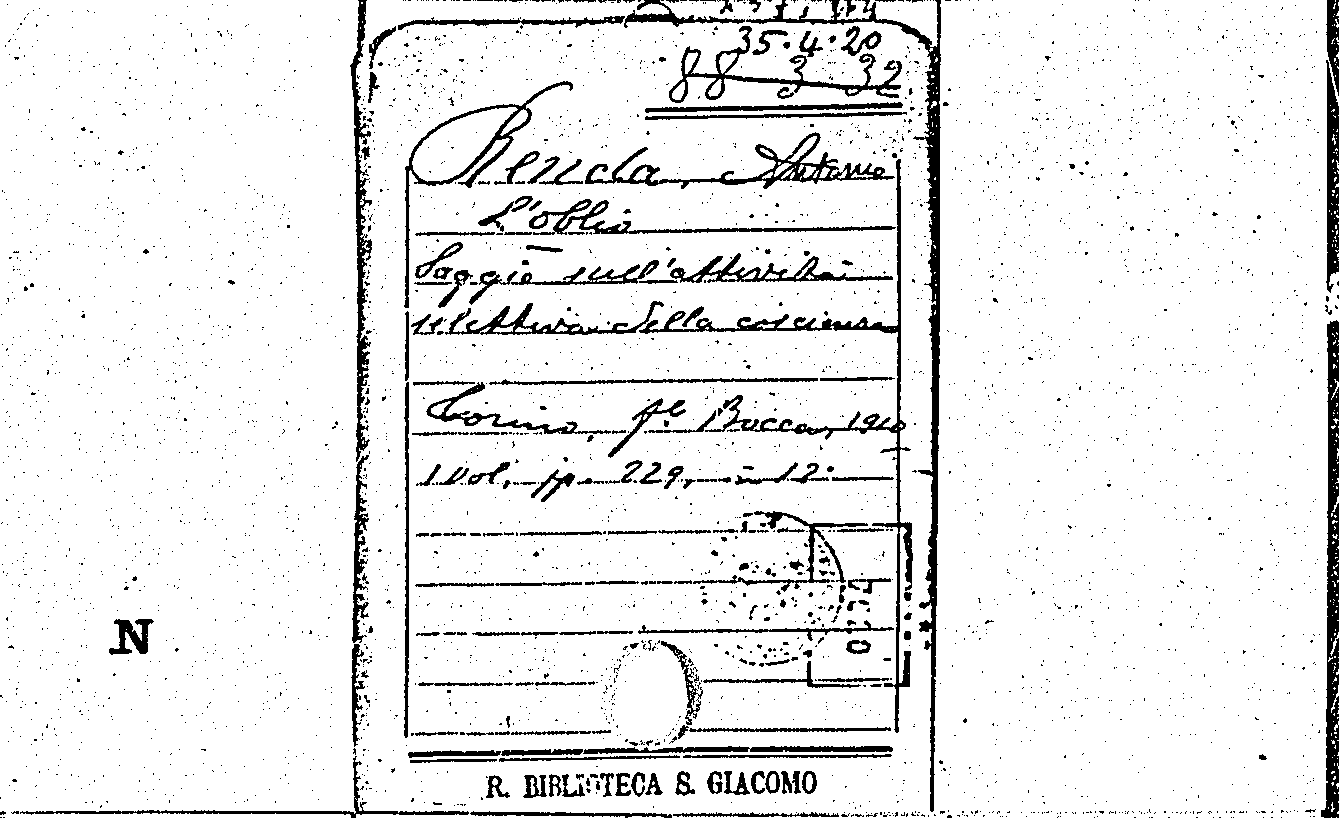 35·4·20
88 3 32
Renda, Antonio
L'oblio
Saggio sull'attività
selettiva della coscienza
Torino, f.lli Bocca, 1910
1 vol. pp. 229, in 12°
N
R. BIBLIOTECA S. GIACOMO